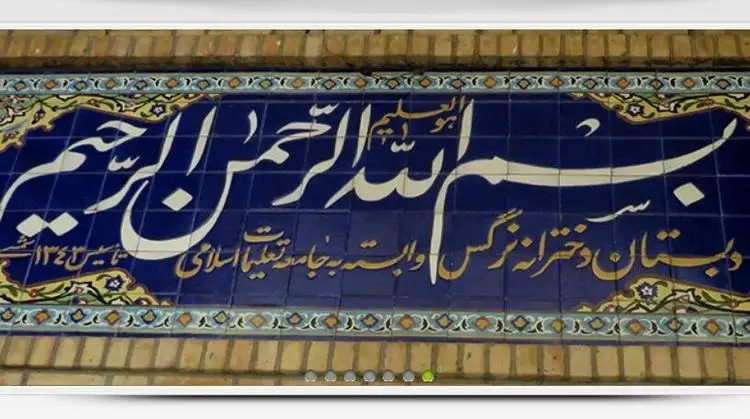 هو العلیم
بسم الله الرحمن الرحیم
دبستان دخترانه نرگس وابسته به جامعه تعلیمات اسلامی تاسیس ۱۳۴۳